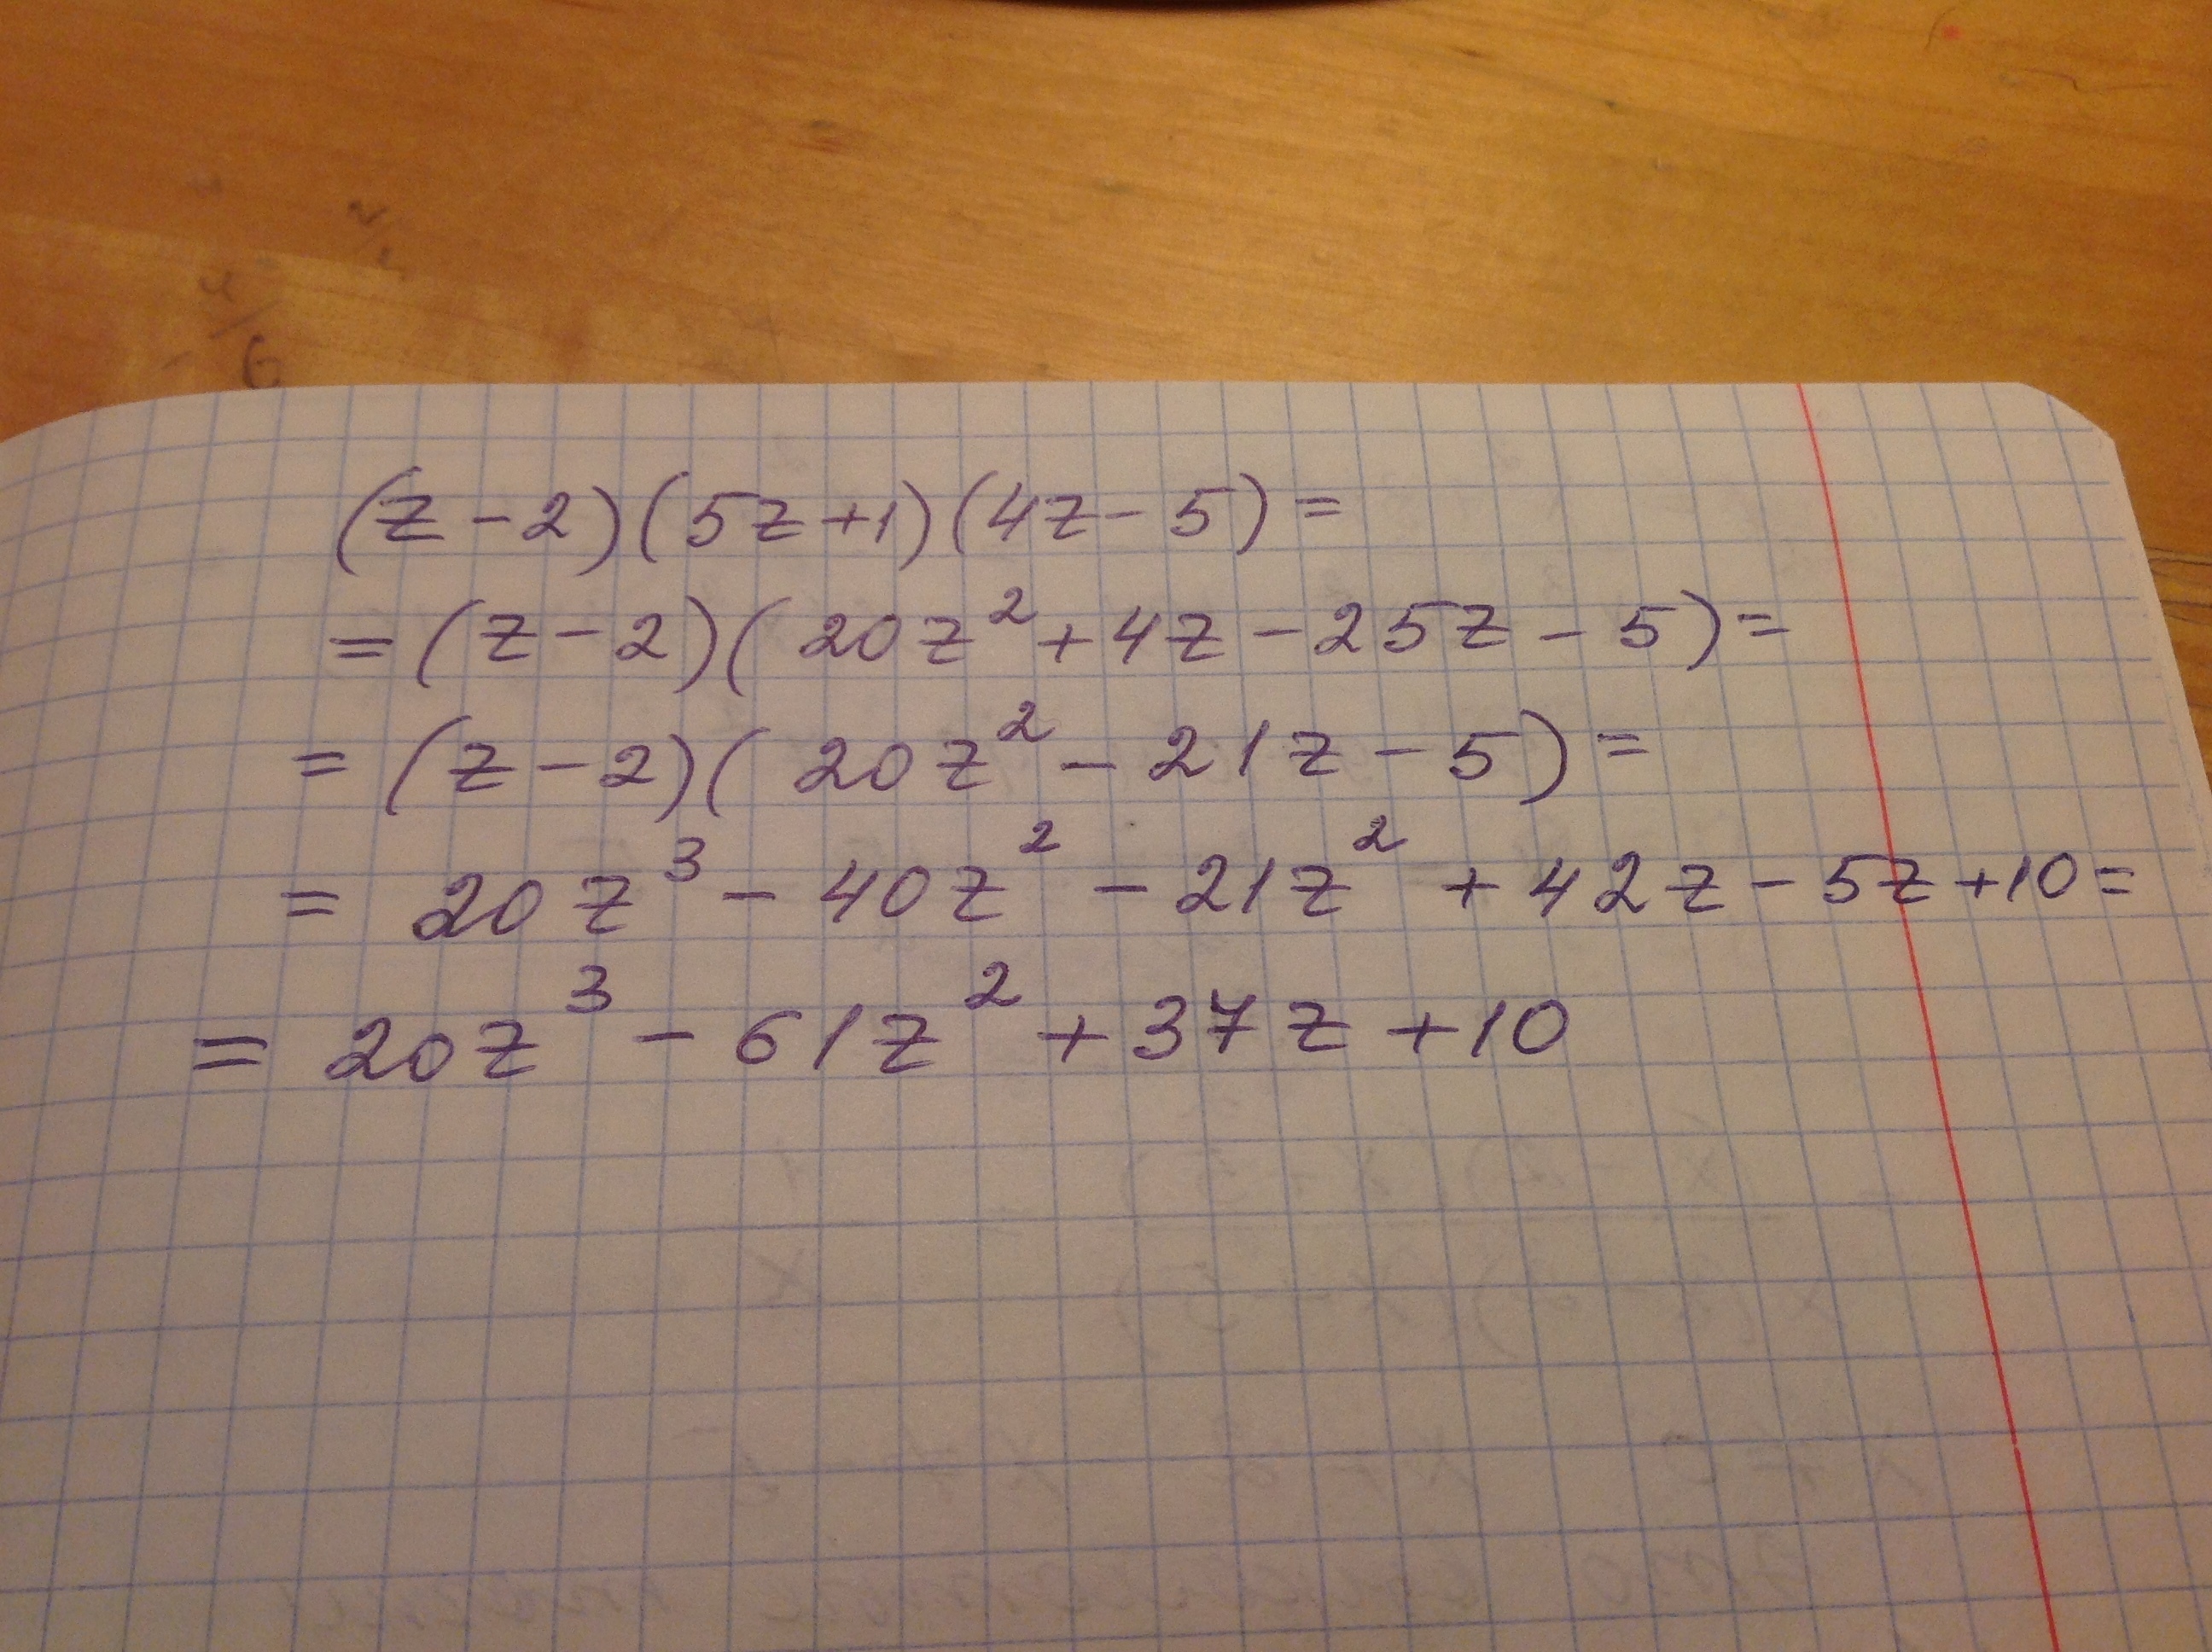 (z-2)(5z+1)(4z-5)=
=(z-2)(20z²+4z-25z-5)=
=(z-2)(20z²-21z-5)=
=20z³-40z²-21z²+42z-5z+10=
=20z³-61z²+37z+10